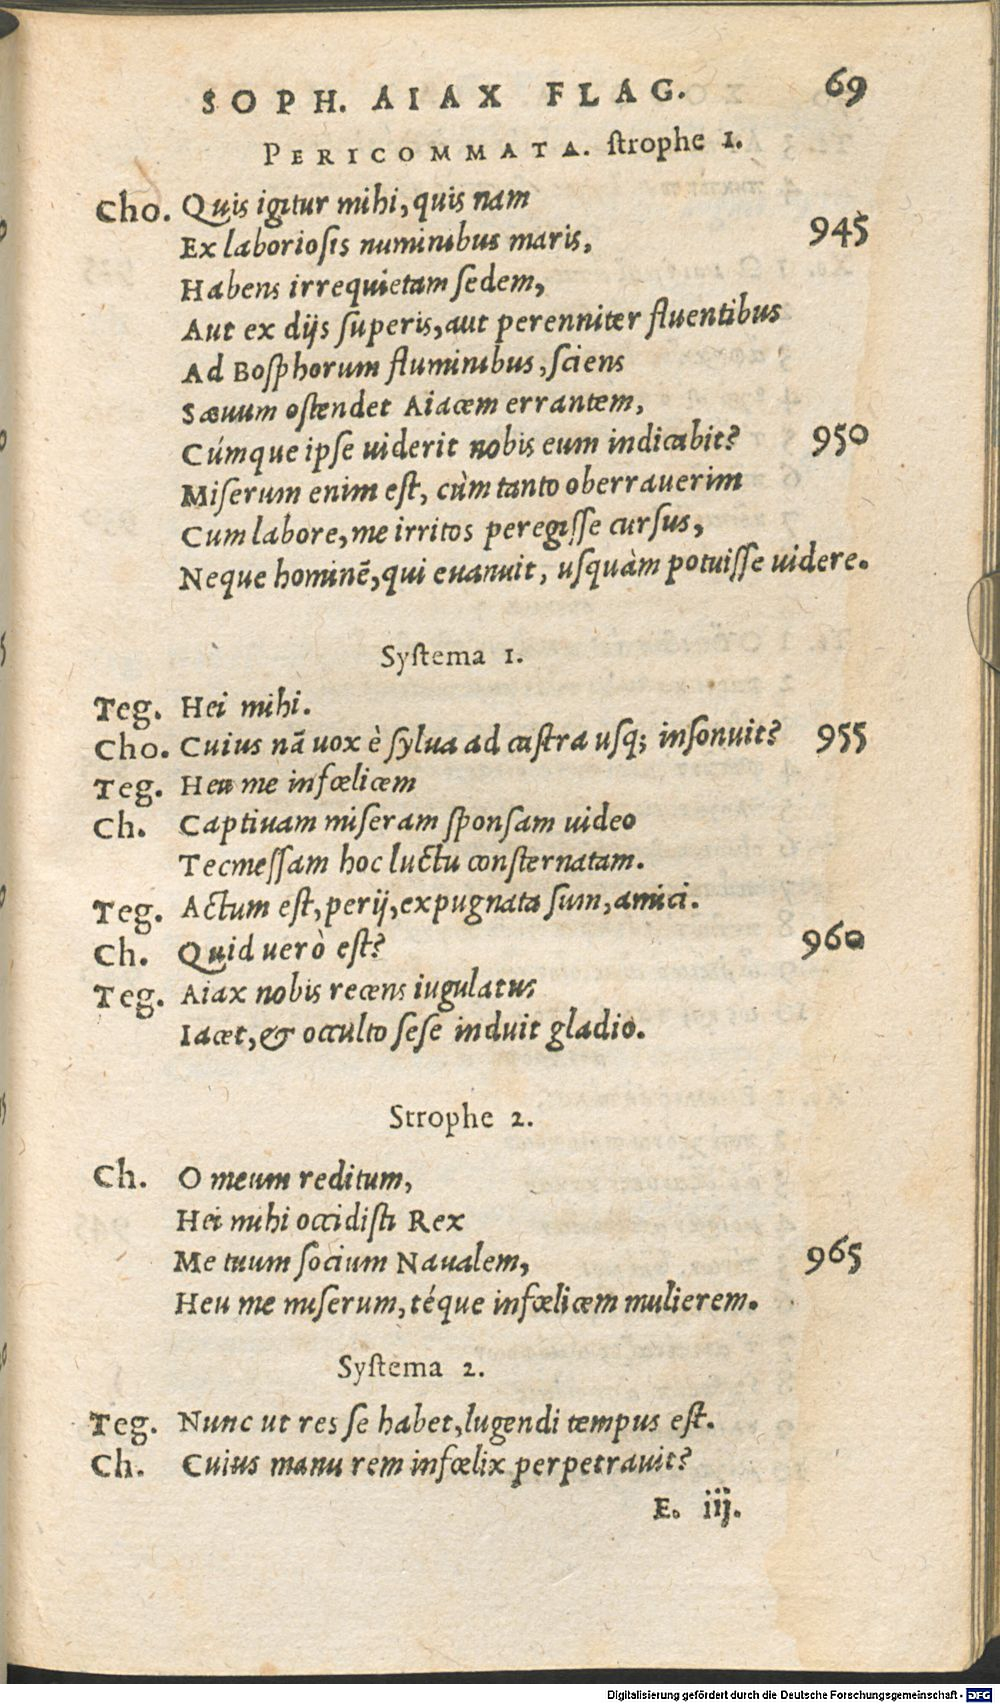 SOPH. AIAX FLAG. 69
PERICOMMATA. ſtrophe 1.
Cho. Quis igitur mihi, quis nam
Ex laborioſis numinibus maris, 945
Habens irrequietam ſedem,
Aut ex dijs ſuperis, aut perenniter fluentibus
Ad Boſphorum fluminibus, ſciens
Sæuum oſtendet Aiacem errantem,
Cúmque ipſe uiderit nobis eum indicabit? 950
Miſerum enim eſt, cùm tanto oberrauerim
Cum labore, me irritos peregiſſe curſus,
Neque hominē, qui euanuit, uſquàm potuiſſe uidere.
Syſtema 1.
Teg. Hei mihi.
Cho. Cuius nā uox è ſylua ad caſtra uſq; inſonuit? 955
Teg. Heu me infœlicem
Ch. Captiuam miſeram ſponſam uideo
Tecmeſſam hoc luctu conſternatam.
Teg. Actum eſt, perij, expugnata ſum, amici.
Ch. Quid uerò eſt? 960
Teg. Aiax nobis recens iugulatus
Iacet, & occulto ſeſe induit gladio.
Strophe 2.
Ch. O meum reditum,
Hei mihi occidiſti Rex
Me tuum ſocium Naualem, 965
Heu me miſerum, téque infœlicem mulierem.
Syſtema 2.
Teg. Nunc ut res ſe habet, lugendi tempus eſt.
Ch. Cuius manu rem infœlix perpetrauit?
E. iij.
Digitalisierung gefördert durch die Deutsche Forschungsgemeinschaft - DFG